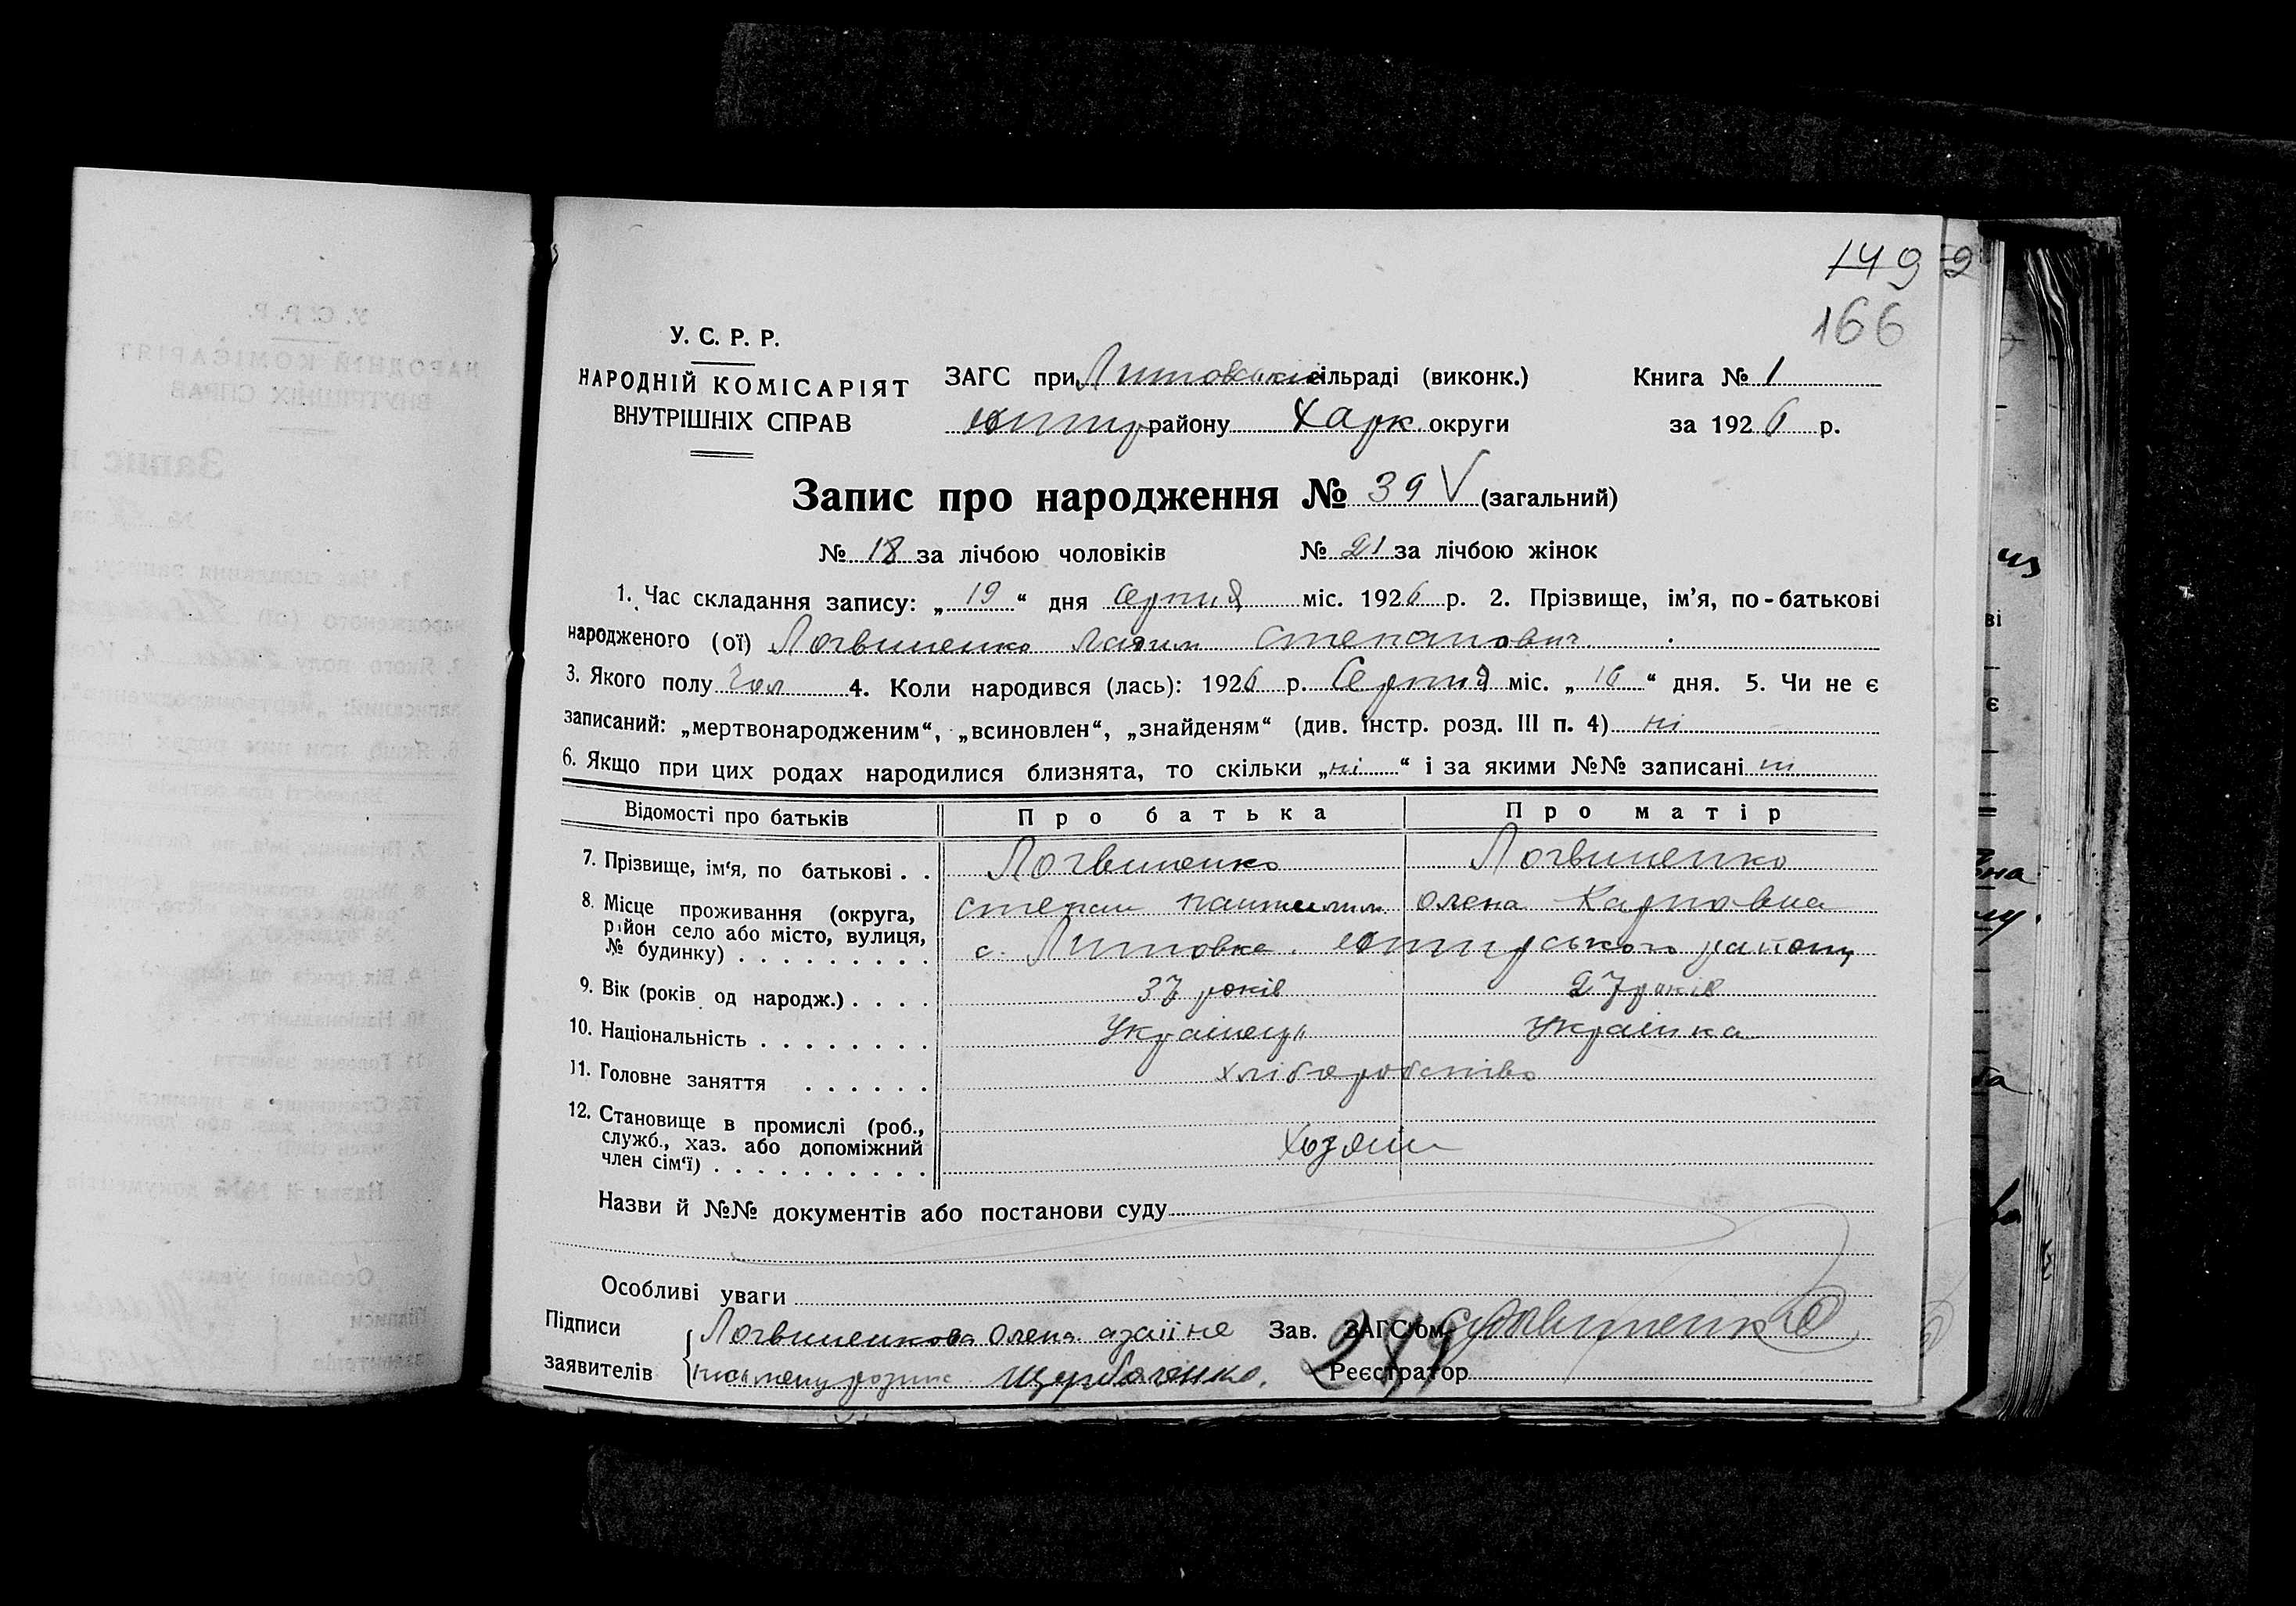 149 2
166
У. С. Р. Р.
НАРОДНІЙ КОМІСАРІЯТ
ВНУТРІШНІХ СПРАВ
ЗАГС при Литовській сільраді (виконк.)
району Харк округи
Книга № 1
за 1926 р.
Запис про народження № 39 V (загальний)
№ 18 за лічбою чоловіків № 21 за лічбою жінок
1. Час складання запису: „ 19 “ дня Серпня міс. 1926 р. 2. Прізвище, ім’я, по-батькові
народженого (ої) Логвиненко Степанович
3. Якого полу Чол 4. Коли народився (лась): 1926 р. Серпня міс. „ 16 “ дня. 5. Чи не є
записаний: „мертвонародженим“, „всиновлен“, „знайденям“ (див. інстр. розд. III п. 4) ні
6. Якщо при цих родах народилися близнята, то скільки „ ні “ і за якими №№ записані ні
Відомості про батьків Про батька Про матір
7. Прізвище, ім‘я, по батькові . . Логвиненко Логвиненко
Степан Олена Карповна
8. Місце проживання (округа,
район село або місто, вулиця,
№ будинку) . . . . . . . . . с. Литовка району
9. Вік (років од народж.) . . . . 37 років 27 років
10. Національність . . . . . . . . Українець Українка
11. Головне заняття . . . . . . хліборобство
12. Становище в промислі (роб.,
служб., хаз. або допоміжний
член сім‘ї) . . . . . . . . . . Хозяин
Назви й №№ документів або постанови суду
Особливі уваги
Підписи
заявителів
Логвиненкова Олена а за її не
Щербаченко.
Зав. ЗАГС‘ом
Реєстратор